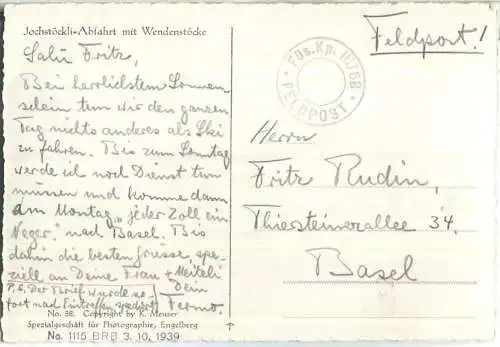 Jochstöckli-Abfahrt mit Wendenstöcke
Salü Fritz,
Bei herrlichstem Sonnen-
schein tun wir den ganzen
Tag nichts anderes als Ski
zu fahren. Bis zum Sonntag
werde ich noch Dienst tun
müssen und komme dann
am Montag "jeder Zoll ein
Neger." nach Basel. Bis
dahin die besten Grüsse, spe-
ziell an Deine Frau + Meiteli
Dein
P.S. Der Brief wurde so-
fort nach Eintreffen
No. 38. Copyright by K. Meuser
Spezialgeschäft für Photographie, Engelberg
No. 1115 BRB 3. 10. 1939
Feldpost!
Füs. Kp. III/68
FELDPOST
Herrn
Fritz Rudin,
Thiersteinerallee 34.
Basel